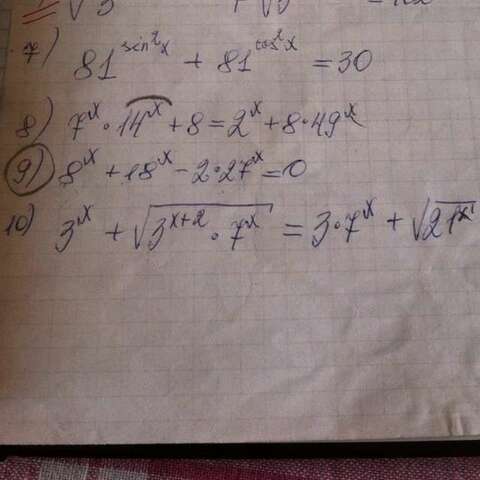 7) 81^{sin²x} + 81^{cos²x} = 30
8) 7^x · 14^x + 8 = 2^x + 8 · 49^x
9) 8^x + 18^x - 2 · 27^x = 0
10) 3^x + √(3^{x+2} · 7^x) = 3 · 7^x + √(21^x)